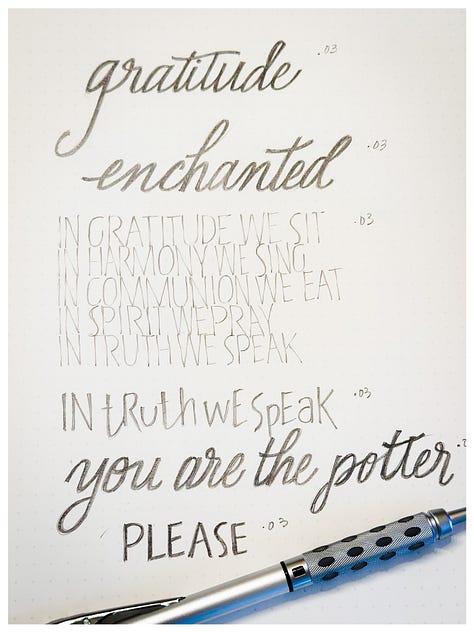 gratitude .03
enchanted .03
IN GRATITUDE WE SIT .03
IN HARMONY WE SING
IN COMMUNION WE EAT
IN SPIRIT WE PRAY
IN TRUTH WE SPEAK
IN tRuth wE SpEaK .03
you are the potter
PLEASE .03